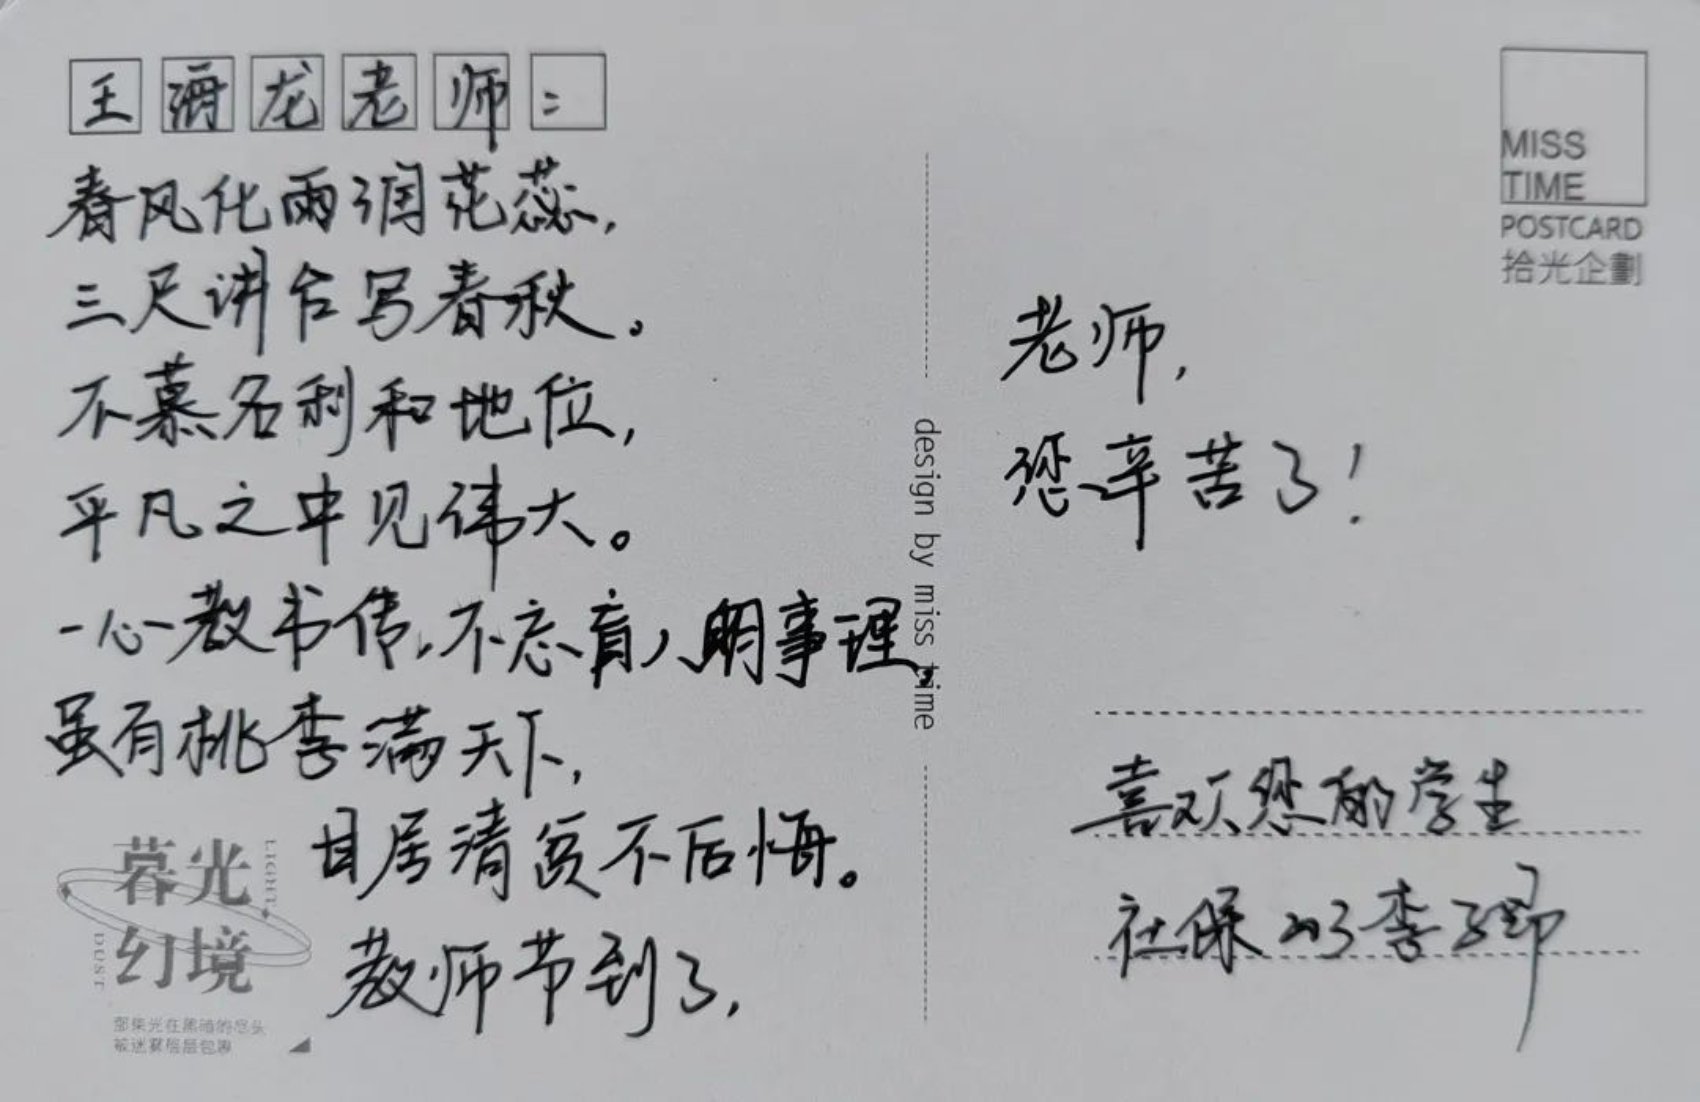 王海龙老师：
春风化雨润花蕊，
三尺讲台写春秋。
不慕名利和地位，
平凡之中见伟大。
一心教书传，不忘育人明事理，
虽有桃李满天下，
甘居清贫不后悔。
教师节到了，
老师，
您辛苦了！
喜欢您的学生
社保203李子
MISS
TIME
POSTCARD
拾光企劃
design by miss time
暮光
幻境
LIGHT
DUST
部集光在黑暗的尽头
被迷雾层层包裹